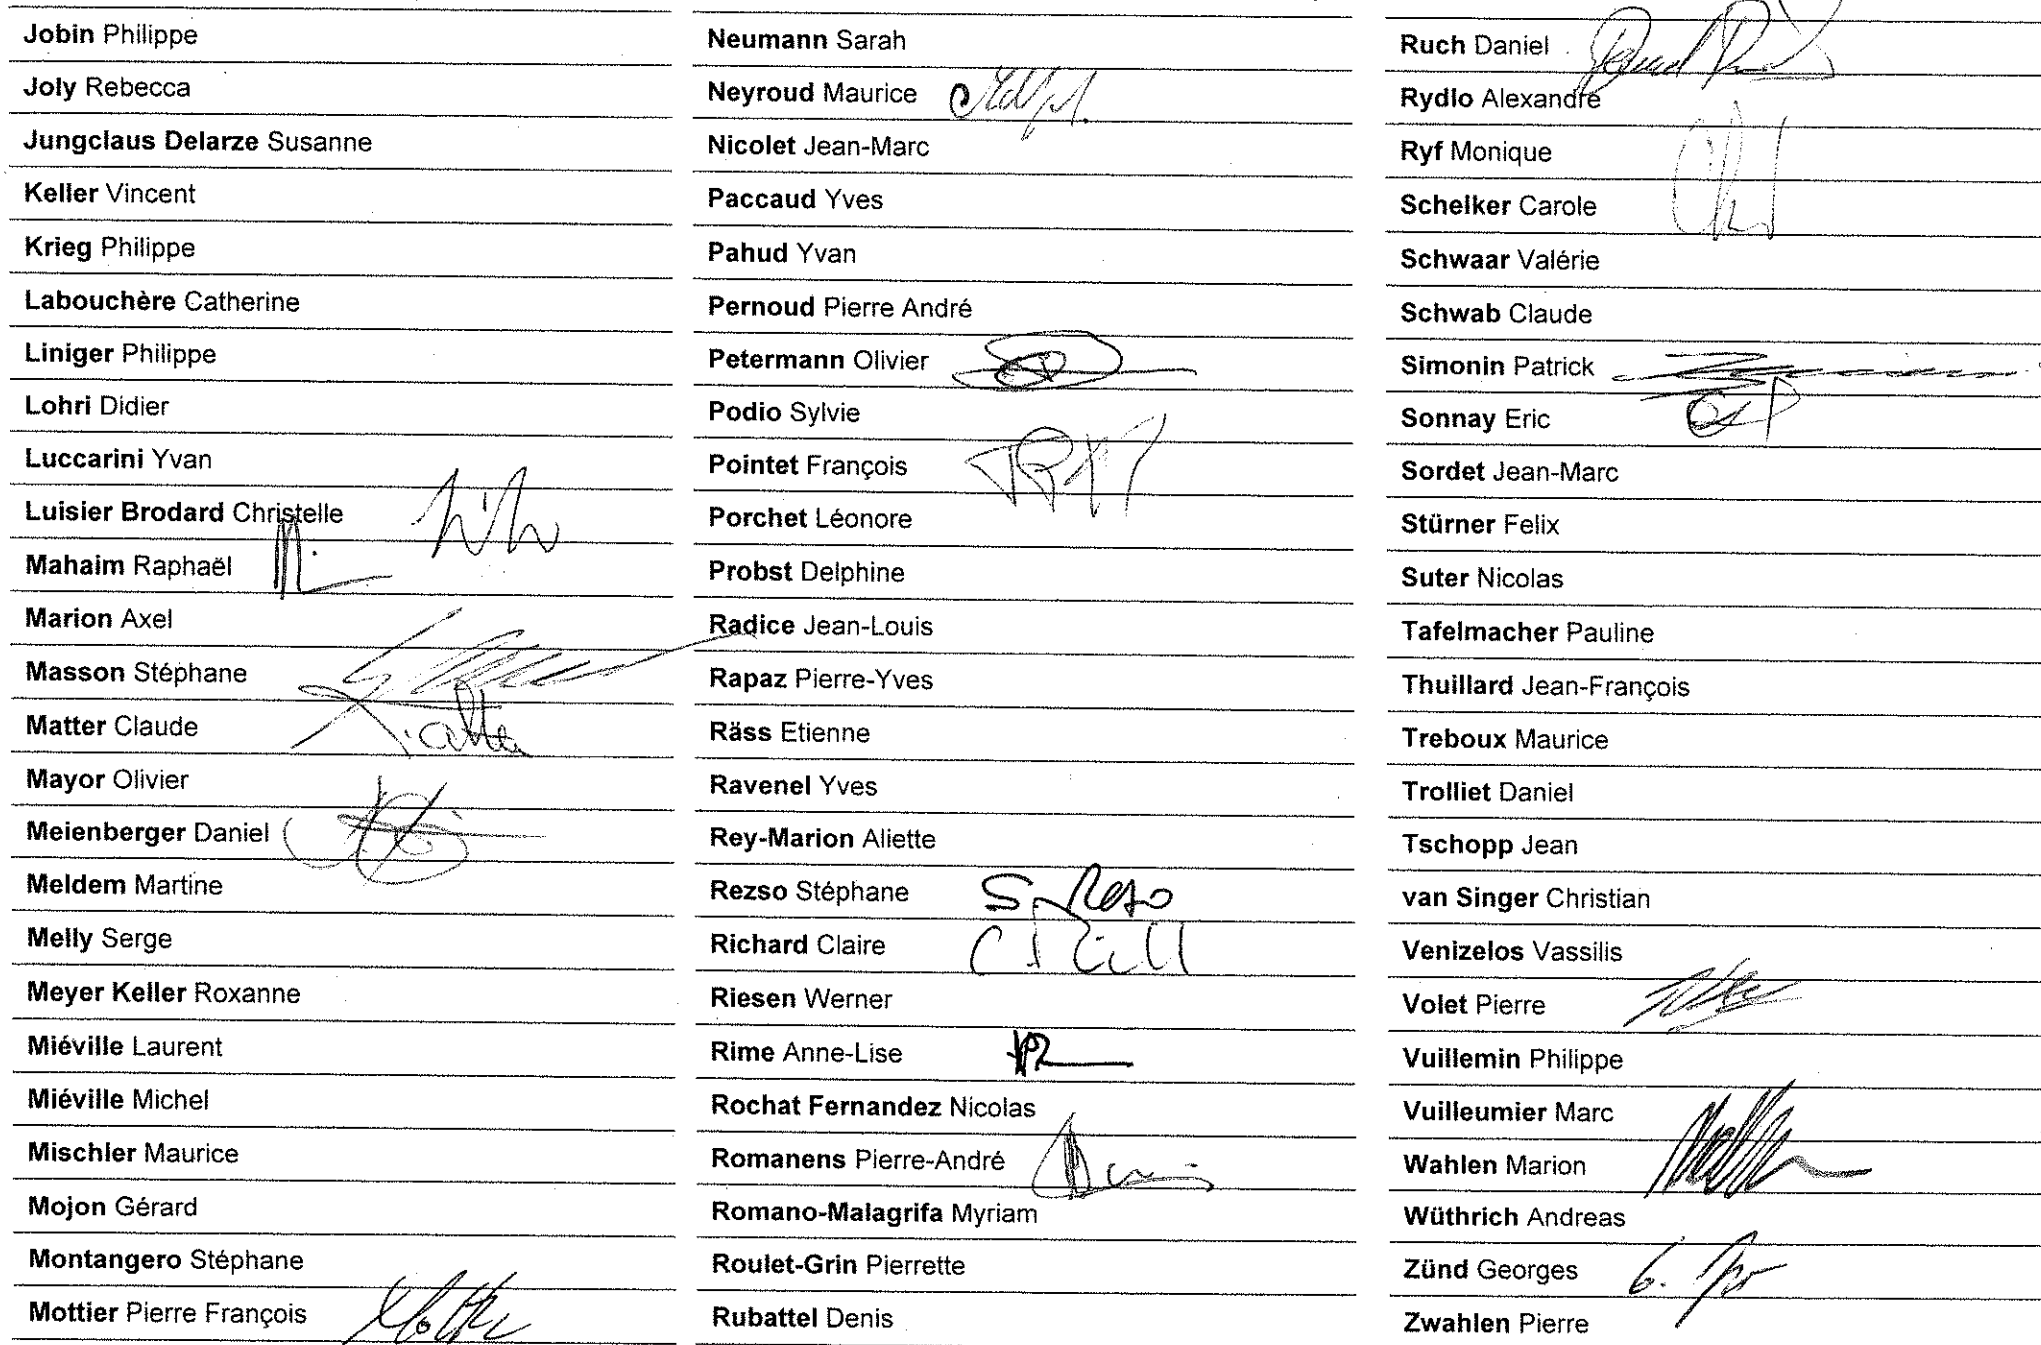 Jobin Philippe
Joly Rebecca
Jungclaus Delarze Susanne
Keller Vincent
Krieg Philippe
Labouchère Catherine
Liniger Philippe
Lohri Didier
Luccarini Yvan
Luisier Brodard Christelle
Mahaim Raphaël
Marion Axel
Masson Stéphane
Matter Claude
Mayor Olivier
Meienberger Daniel
Meldem Martine
Melly Serge
Meyer Keller Roxanne
Miéville Laurent
Miéville Michel
Mischler Maurice
Mojon Gérard
Montangero Stéphane
Mottier Pierre François
Neumann Sarah
Neyroud Maurice
Nicolet Jean-Marc
Paccaud Yves
Pahud Yvan
Pernoud Pierre André
Petermann Olivier
Podio Sylvie
Pointet François
Porchet Léonore
Probst Delphine
Radice Jean-Louis
Rapaz Pierre-Yves
Räss Etienne
Ravenel Yves
Rey-Marion Aliette
Rezso Stéphane
Richard Claire
Riesen Werner
Rime Anne-Lise
Rochat Fernandez Nicolas
Romanens Pierre-André
Romano-Malagrifa Myriam
Roulet-Grin Pierrette
Rubattel Denis
Ruch Daniel
Rydlo Alexandre
Ryf Monique
Schelker Carole
Schwaar Valérie
Schwab Claude
Simonin Patrick
Sonnay Eric
Sordet Jean-Marc
Stürner Felix
Suter Nicolas
Tafelmacher Pauline
Thuillard Jean-François
Treboux Maurice
Trolliet Daniel
Tschopp Jean
van Singer Christian
Venizelos Vassilis
Volet Pierre
Vuillemin Philippe
Vuilleumier Marc
Wahlen Marion
Wüthrich Andreas
Zünd Georges
Zwahlen Pierre